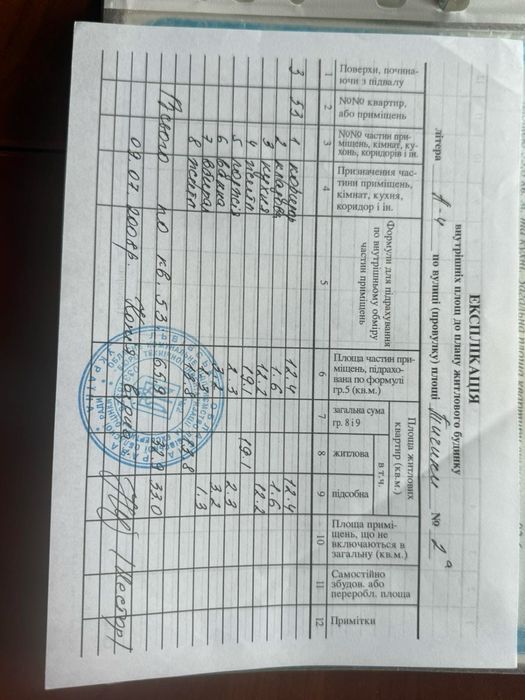 ЕКСПЛІКАЦІЯ
внутрішніх площ до плану житлового будинку
літера А-4 по вулиці (провулку) площі № 2а
Поверхи, починаючи з підвалу
№№ квартир, або приміщень
№№ частин приміщень, кімнат, кухонь, коридорів і ін.
Призначення частини приміщень, кімнат, кухня, коридор і ін.
Формули для підрахування по внутрішньому обміру частин приміщень
Площа частин приміщень, підрахована по формулі гр.5 (кв.м.)
Площа житлових квартир (кв.м.)
загальна сума гр. 8 і 9
в т.ч.
житлова
підсобна
Площа приміщень, що не включаються в загальну (кв.м.)
Самостійно збудов. або переробл. площа
Примітки
1 2 3 4 5 6 7 8 9 10 11 12
3 53 1 12.4 12.4
2 1.6 1.6
3 кухня 12.2 12.2
4 19.1 19.1
5 2.3 2.3
6 3.2 3.2
7 1.3 1.3
8 13.8 13.8
Всього по кв. 53 65.9 32.9 33.0
09.07.2008р. Копія вірна
УКРАЇНА